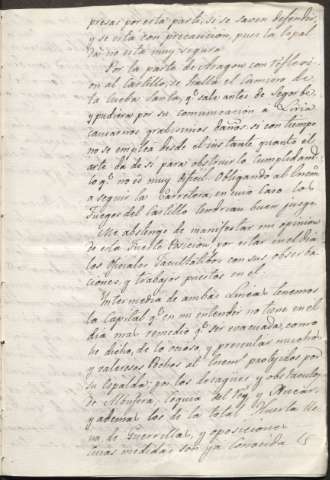 presas por esta parte, si se saven defender,
y se está con precaucion, pues la espal-
da no esta muy segura
Por la parte de Aragon con reflexi-
on al Castillo, se halla el camino de
la Cueba Santa, q.e sale antes de Segorbe,
y pudiera por su comunicacion a Liria
causarnos gravisimos daños si con tiempo
no se emplea desde el instante quanto el
arte dá de si para obstruirlo cumplidamt.e
lo q.e no és muy dificil. Obligando al Enem.o
a seguir la Carretera, en cuio caso los
fuegos del Castillo tendrian buen juego
Me abstengo de manifestar mi opinion
de esta fuerte Posicion por estar en el dia
los Oficiales facultatibos con sus observa-
ciones y trabajos puestos en el.
Intermedia de ambas Lineas tenemos
la Capital q.e en mi entender no tiene en el
dia mas remedio q.e ser evacuada, como
he dicho, de lo ocioso, y presentar muchos
y valerosos Pechos al Enem.o protejidos por
su espalda por los desagües y obstaculos
de Albufera, Cequia del Rey, y Jucar,
y ademas los de la total Huerta lle-
na de Guerrillas, y oposiciones
cuias medidas son ya conocidas